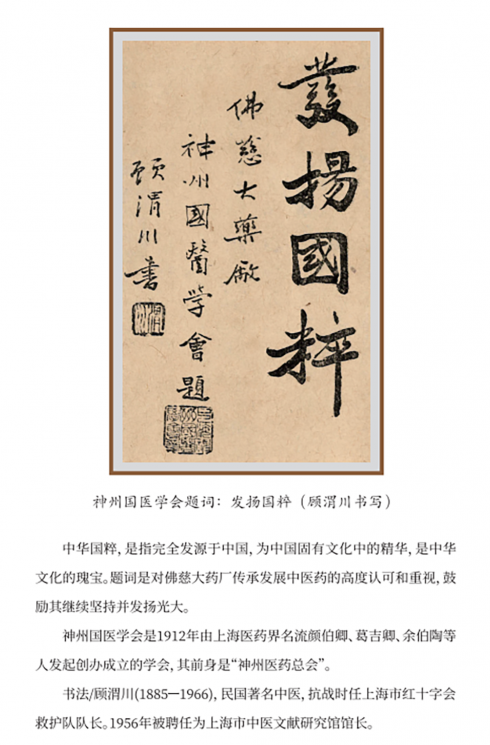 發揚國粹
佛慈大藥厰
神州國醫学會題
顾渭川書
神州国医学会题词：发扬国粹（顾渭川书写）
中华国粹，是指完全发源于中国，为中国固有文化中的精华，是中华
文化的瑰宝。题词是对佛慈大药厂传承发展中医药的高度认可和重视，鼓
励其继续坚持并发扬光大。
神州国医学会是1912年由上海医药界名流颜伯卿、葛吉卿、余伯陶等
人发起创办成立的学会，其前身是“神州医药总会”。
书法/顾渭川(1885—1966)，民国著名中医，抗战时任上海市红十字会
救护队队长。1956年被聘任为上海市中医文献研究馆馆长。